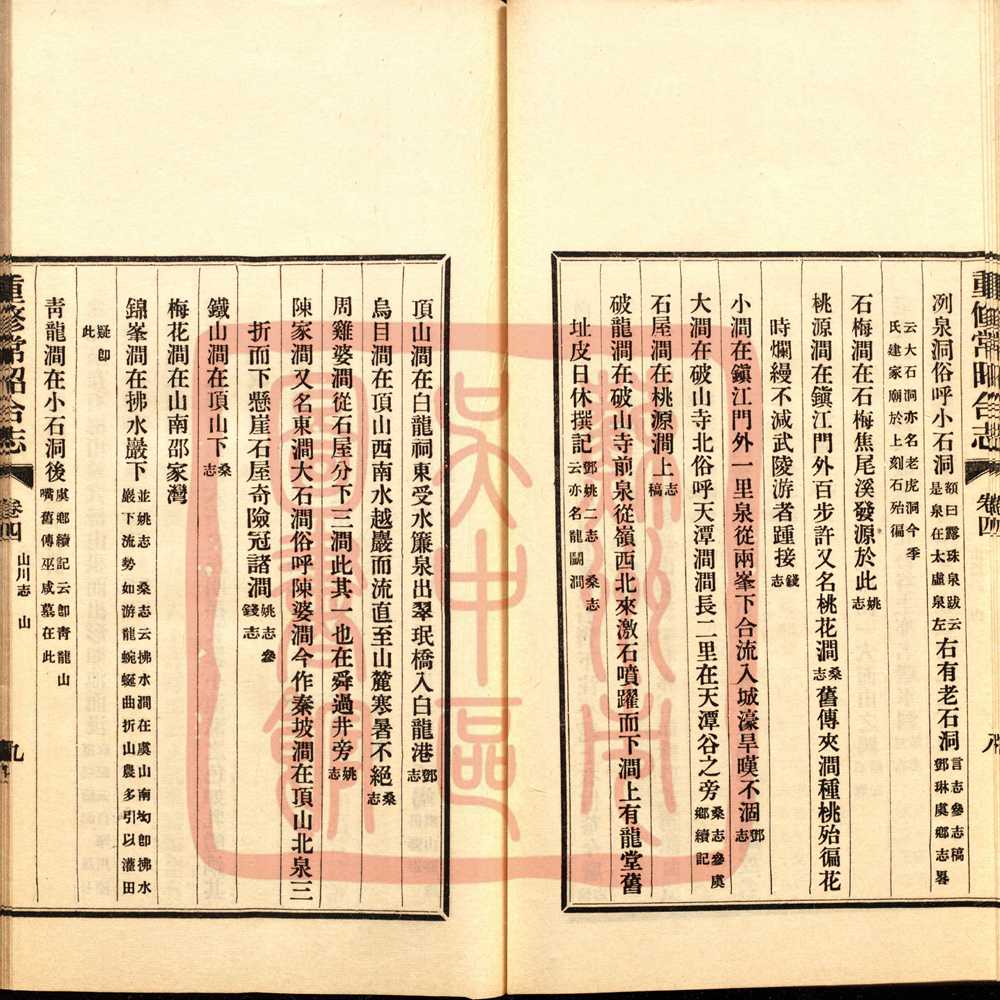 重修常昭合志
卷四
八
冽泉洞俗呼小石洞額曰露珠泉跋云是泉在太虛泉左右有老石洞言志參志稿鄧琳虞鄉志畧
云大石洞亦名老虎洞今季氏建家廟於上刻石殆徧
石梅澗在石梅焦尾溪發源於此姚志
桃源澗在鎭江門外百步許又名桃花澗桑志舊傳夾澗種桃殆徧花
時爛縵不減武陵游者踵接錢志
小澗在鎭江門外一里泉從兩峯下合流入城濠旱暵不涸鄧志
大澗在破山寺北俗呼天潭澗澗長二里在天潭谷之旁桑志參虞鄉續記
石屋澗在桃源澗上志稿
破龍澗在破山寺前泉從嶺西北來激石噴躍而下澗上有龍堂舊
址皮日休撰記鄧姚二志桑志云亦名龍鬭澗
頂山澗在白龍祠東受水簾泉出翠珉橋入白龍港鄧志
烏目澗在頂山西南水越巖而流直至山麓寒暑不絕桑志
周雞婆澗從石屋分下三澗此其一也在舜過井旁姚志
陳家澗又名東澗大石澗俗呼陳婆澗今作秦坡澗在頂山北泉三
折而下懸崖石屋奇險冠諸澗姚志參錢志
鐵山澗在頂山下桑志
梅花澗在山南邵家灣
錦峯澗在拂水巖下並姚志 桑志云拂水澗在虞山南㘬卽拂水巖下流勢如游龍蜿蜒曲折山農多引以灌田
疑卽此
靑龍澗在小石洞後虞鄉續記云卽靑龍山嘴舊傳巫咸墓在此
重修常昭合志
卷四
山川志 山
九